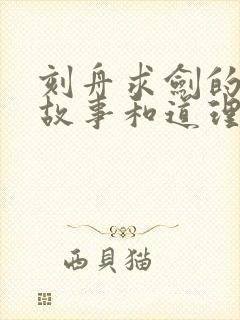 刻舟求劍的
故事和道理
西貝猫